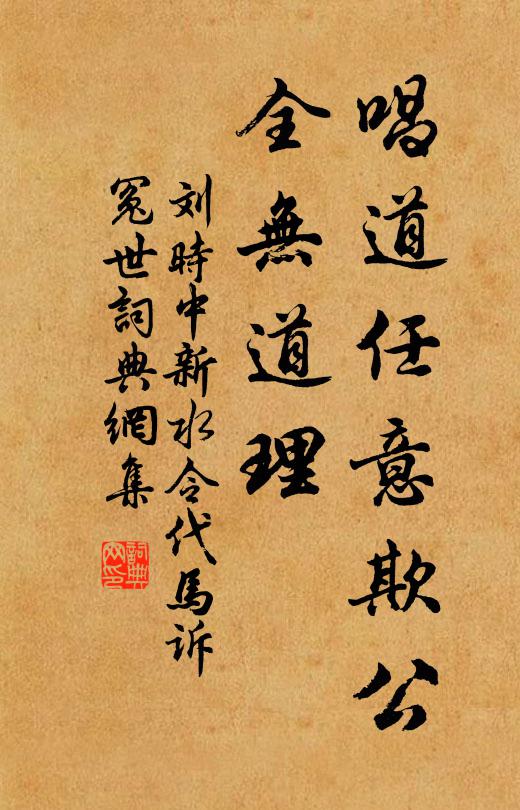 唱道任意欺公
全無道理
刘時中新水令代馬诉
冤世詞典網集
詞典
网印